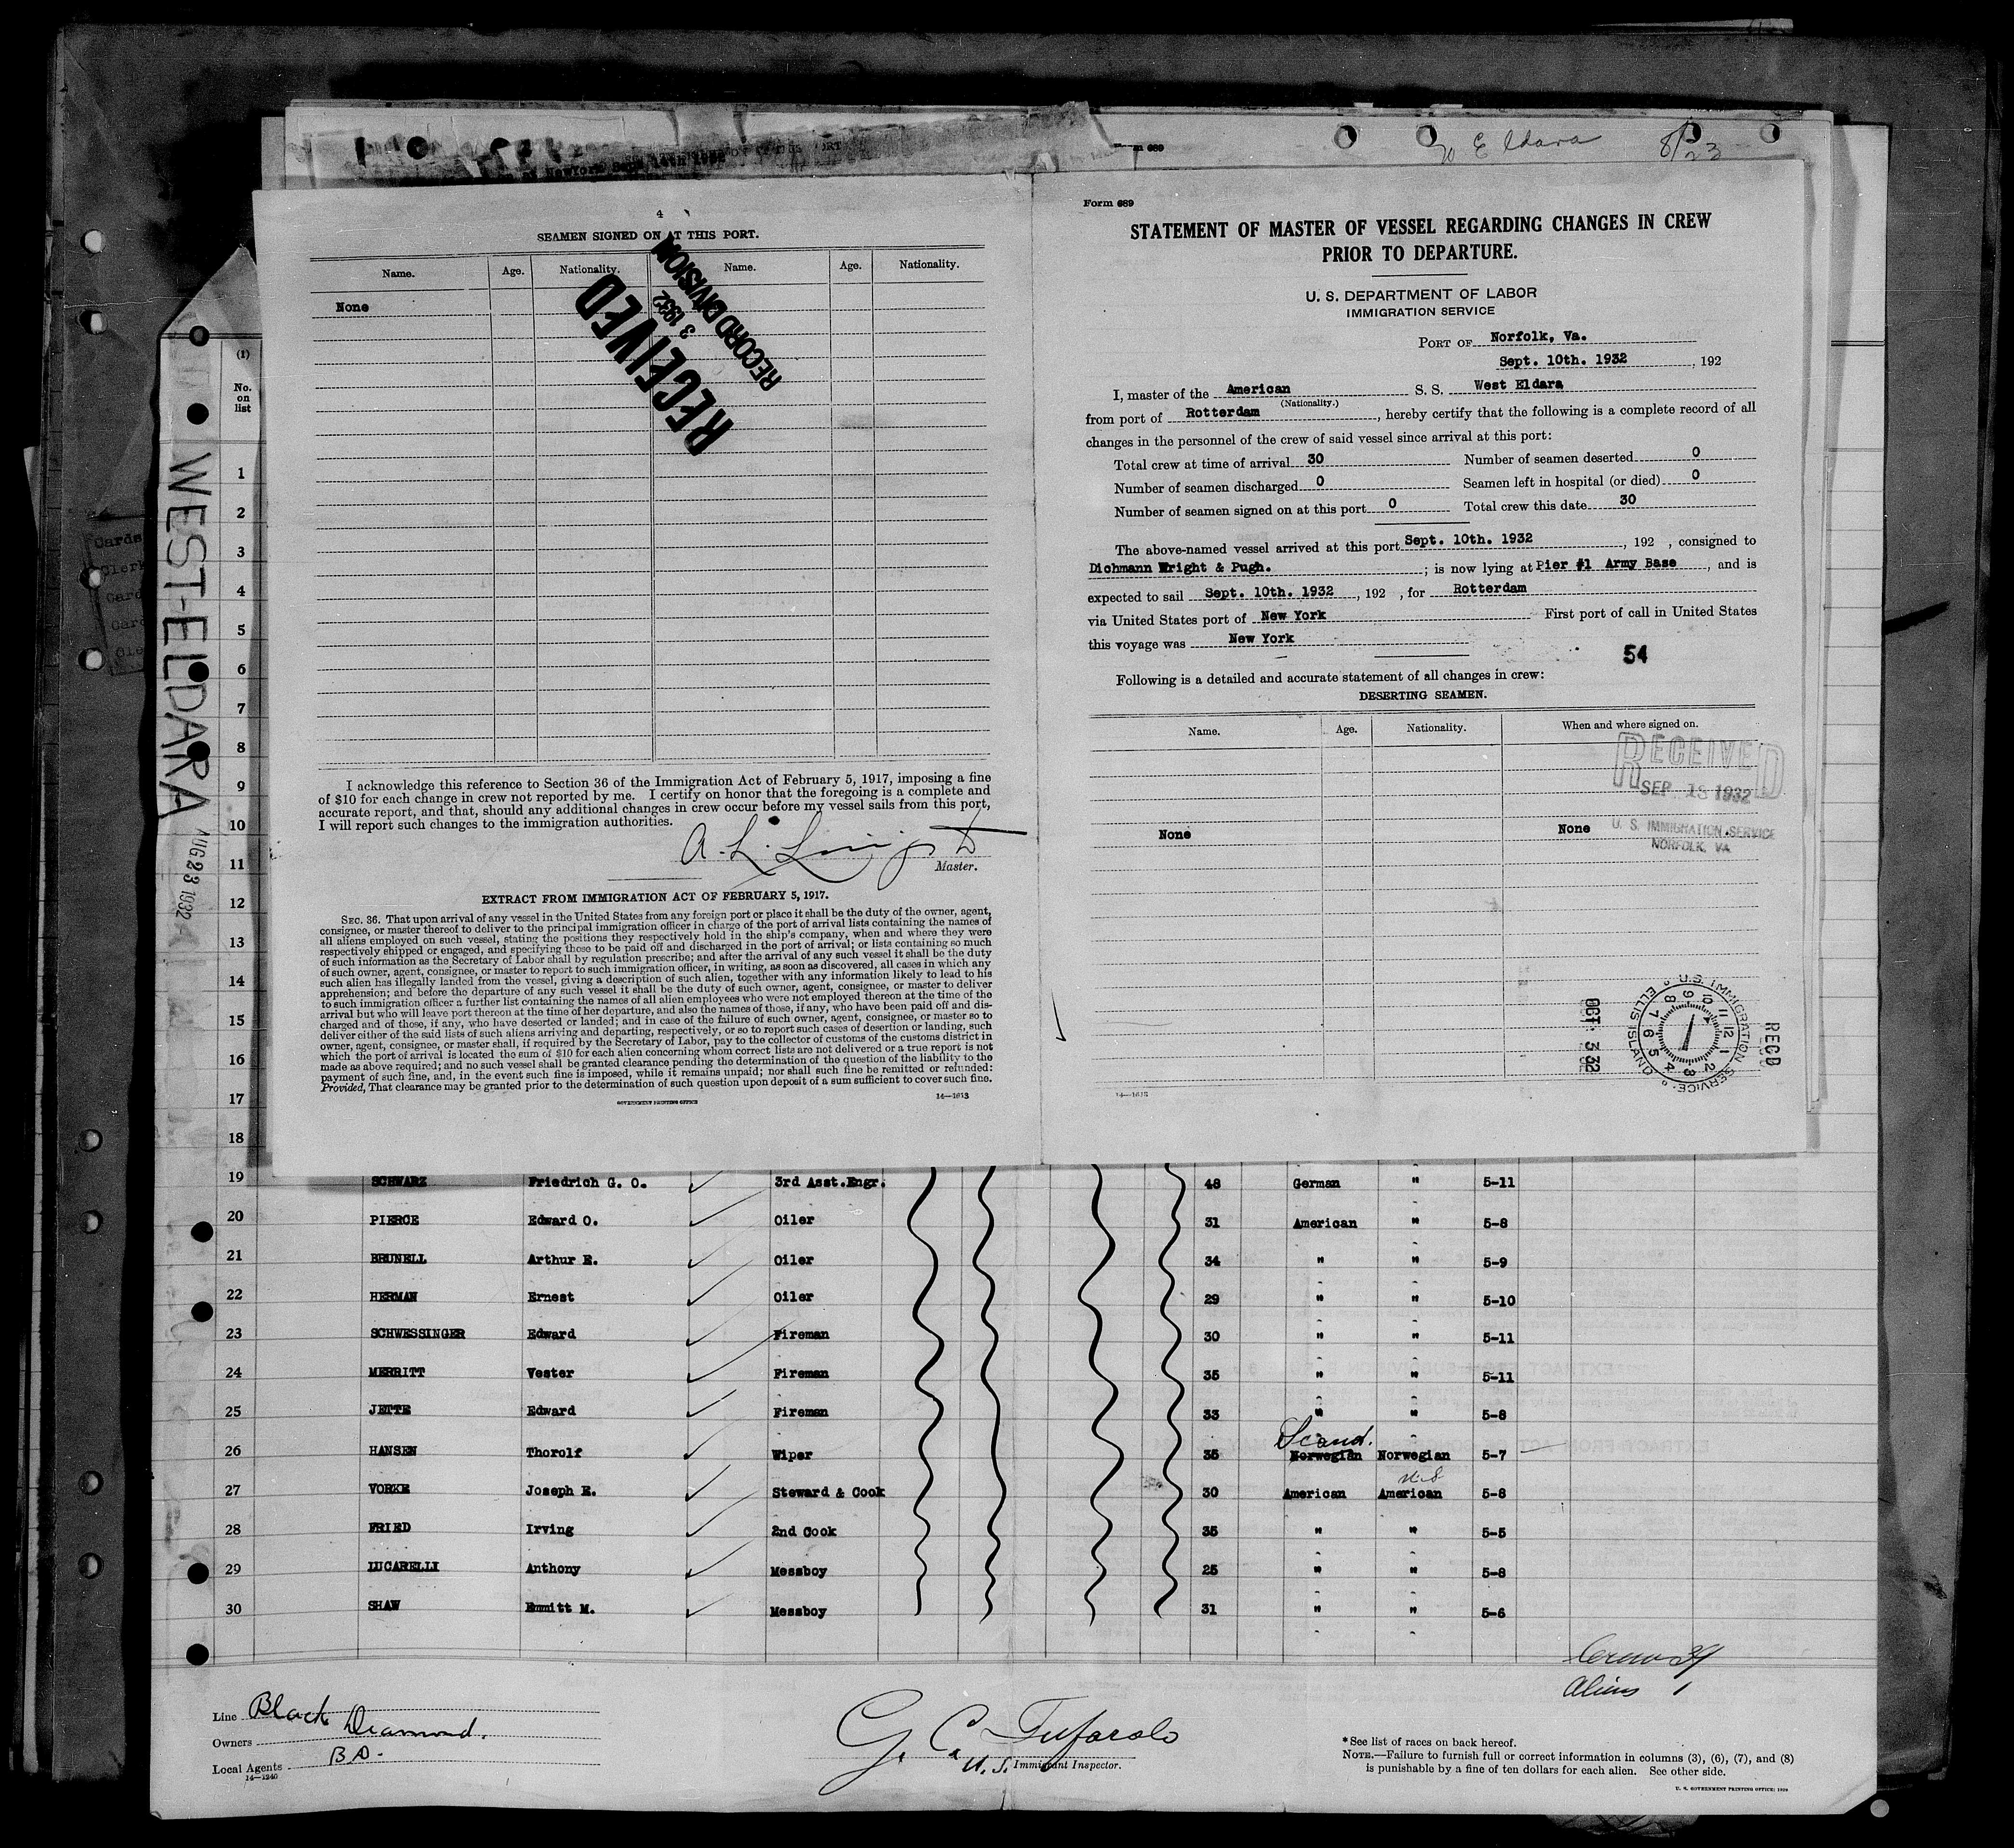 W Eldara 8/23
4
SEAMEN SIGNED ON AT THIS PORT.
Name. Age. Nationality. Name. Age. Nationality.
None
RECEIVED
3 1932
RECORD DIVISION
I acknowledge this reference to Section 36 of the Immigration Act of February 5, 1917, imposing a fine
of $10 for each change in crew not reported by me. I certify on honor that the foregoing is a complete and
accurate report, and that, should any additional changes in crew occur before my vessel sails from this port,
I will report such changes to the immigration authorities.
A. L.
Master.
EXTRACT FROM IMMIGRATION ACT OF FEBRUARY 5, 1917.
SEC. 36. That upon arrival of any vessel in the United States from any foreign port or place it shall be the duty of the owner, agent,
consignee, or master thereof to deliver to the principal immigration officer in charge of the port of arrival lists containing the names of
all aliens employed on such vessel, stating the positions they respectively hold in the ship's company, when and where they were
respectively shipped or engaged, and specifying those to be paid off and discharged in the port of arrival; or lists containing so much
of such information as the Secretary of Labor shall by regulation prescribe; and after the arrival of any such vessel it shall be the duty
of such owner, agent, consignee, or master to report to such immigration officer, in writing, as soon as discovered, all cases in which any
such alien has illegally landed from the vessel, giving a description of such alien, together with any information likely to lead to his
apprehension; and before the departure of any such vessel it shall be the duty of such owner, agent, consignee, or master to deliver
to such immigration officer a further list containing the names of all alien employees who were not employed thereon at the time of the
arrival but who will leave port thereon at the time of her departure, and also the names of those, if any, who have been paid off and dis-
charged and of those, if any, who have deserted or landed; and in case of the failure of such owner, agent, consignee, or master so to
deliver either of the said lists of such aliens arriving and departing, respectively, or so to report such cases of desertion or landing, such
owner, agent, consignee, or master shall, if required by the Secretary of Labor, pay to the collector of customs of the customs district in
which the port of arrival is located the sum of $10 for each alien concerning whom correct lists are not delivered or a true report is not
made as above required; and no such vessel shall be granted clearance pending the determination of the question of the liability to the
payment of such fine, and, in the event such fine is imposed, while it remains unpaid; nor shall such fine be remitted or refunded:
Provided, That clearance may be granted prior to the determination of such question upon deposit of a sum sufficient to cover such fine.
GOVERNMENT PRINTING OFFICE 14—1613
Form 689
STATEMENT OF MASTER OF VESSEL REGARDING CHANGES IN CREW
PRIOR TO DEPARTURE.
U. S. DEPARTMENT OF LABOR
IMMIGRATION SERVICE
PORT OF Norfolk, Va.
Sept. 10th. 1932, 192
I, master of the American S. S. West Eldara
(Nationality.)
from port of Rotterdam, hereby certify that the following is a complete record of all
changes in the personnel of the crew of said vessel since arrival at this port:
Total crew at time of arrival 30 Number of seamen deserted 0
Number of seamen discharged 0 Seamen left in hospital (or died) 0
Number of seamen signed on at this port 0 Total crew this date 30
The above-named vessel arrived at this port Sept. 10th. 1932, 192 , consigned to
Dichmann Wright & Pugh. ; is now lying at Pier #1 Army Base, and is
expected to sail Sept. 10th. 1932, 192 , for Rotterdam
via United States port of New York First port of call in United States
this voyage was New York
54
Following is a detailed and accurate statement of all changes in crew:
DESERTING SEAMEN.
Name. Age. Nationality. When and where signed on.
RECEIVED
SEP 15 1932
U. S. IMMIGRATION SERVICE
NORFOLK, VA.
None None
OCT 3 32
U.S. IMMIGRATION SERVICE ELLIS ISLAND
RECD
14—1613
WEST-ELDARA
AUG 23 1932
(1)
No.
on
list
1
2
3
4
5
6
7
8
9
10
11
12
13
14
15
16
17
18
19 SCHWARZ Friedrich G. O. 3rd Asst.Engr. 48 German " 5-11
20 PIERCE Edward O. Oiler 31 American " 5-8
21 BRUNELL Arthur E. Oiler 34 " " 5-9
22 HERMAN Ernest Oiler 29 " " 5-10
23 SCHWESSINGER Edward Fireman 30 " " 5-11
24 MERRITT Vester Fireman 35 " " 5-11
25 JETTE Edward Fireman 33 " " 5-8
Scand.
26 HANSEN Thorolf Wiper 35 Norwegian Norwegian 5-7
U.S
27 VORKE Joseph E. Steward & Cook 30 American American 5-8
28 FRIED Irving 2nd Cook 35 " " 5-5
29 LUCARELLI Anthony Messboy 25 " " 5-8
30 SHAW Emmitt M. Messboy 31 " " 5-6
Crew 29
Aliens 1
Line Black Diamond.
Owners
Local Agents B D.
14—1240
G. C. Tufarolo
U.S. Immigrant Inspector.
*See list of races on back hereof.
NOTE.—Failure to furnish full or correct information in columns (3), (6), (7), and (8)
is punishable by a fine of ten dollars for each alien. See other side.
U. S. GOVERNMENT PRINTING OFFICE: 1929